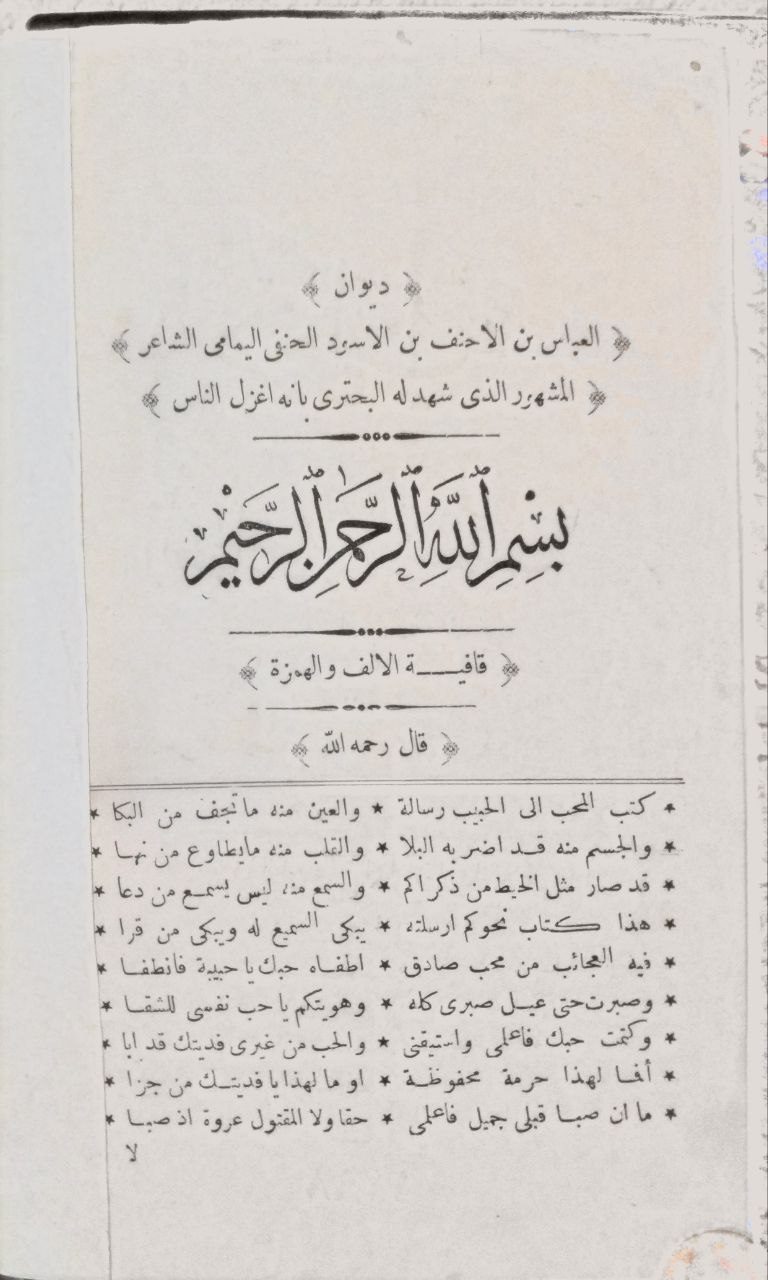 ﴿ ديوان ﴾
﴿ العباس بن الاحنف بن الاسود الحنفى اليمامى الشاعر ﴾
﴿ المشهور الذى شهد له البحترى بانه اغزل الناس ﴾
بِسْمِ ٱللَّهِ ٱلرَّحْمَٰنِ ٱلرَّحِيمِ
﴿ قافيـــة الالف والهمزة ﴾
﴿ قال رحمه الله ﴾
★ كتب المحب الى الحبيب رسالة ★ والعين منه ما تجف من البكا ★
★ والجسم منه قــد اضر به البلا ★ والقلب منه مايطاوع من نهـا ★
★ قد صار مثل الخيط من ذكراكم ★ والسمع منه ليس يسمــع من دعا ★
★ هذا كـــتاب نحوكم ارسلته ★ يبكى السميع له ويبكى من قرا ★
★ فيه العجائب من محب صادق ★ اطفــاه حبك يا حبيبة فانطفــا ★
★ وصبرت حتى عيــل صبرى كله ★ وهويتكم يا حب نفسى للشقــا ★
★ وكتمت حبك فاعلمى واستيقنى ★ والحب من غيرى فديتك قد ابا ★
★ أفمــا لهذا حرمة محفوظــة ★ او ما لهذا يا فديتــك من جزا ★
★ ما ان صبــا قبلى جميل فاعلمى ★ حقا ولا المقتول عروة اذ صبــا ★
لا